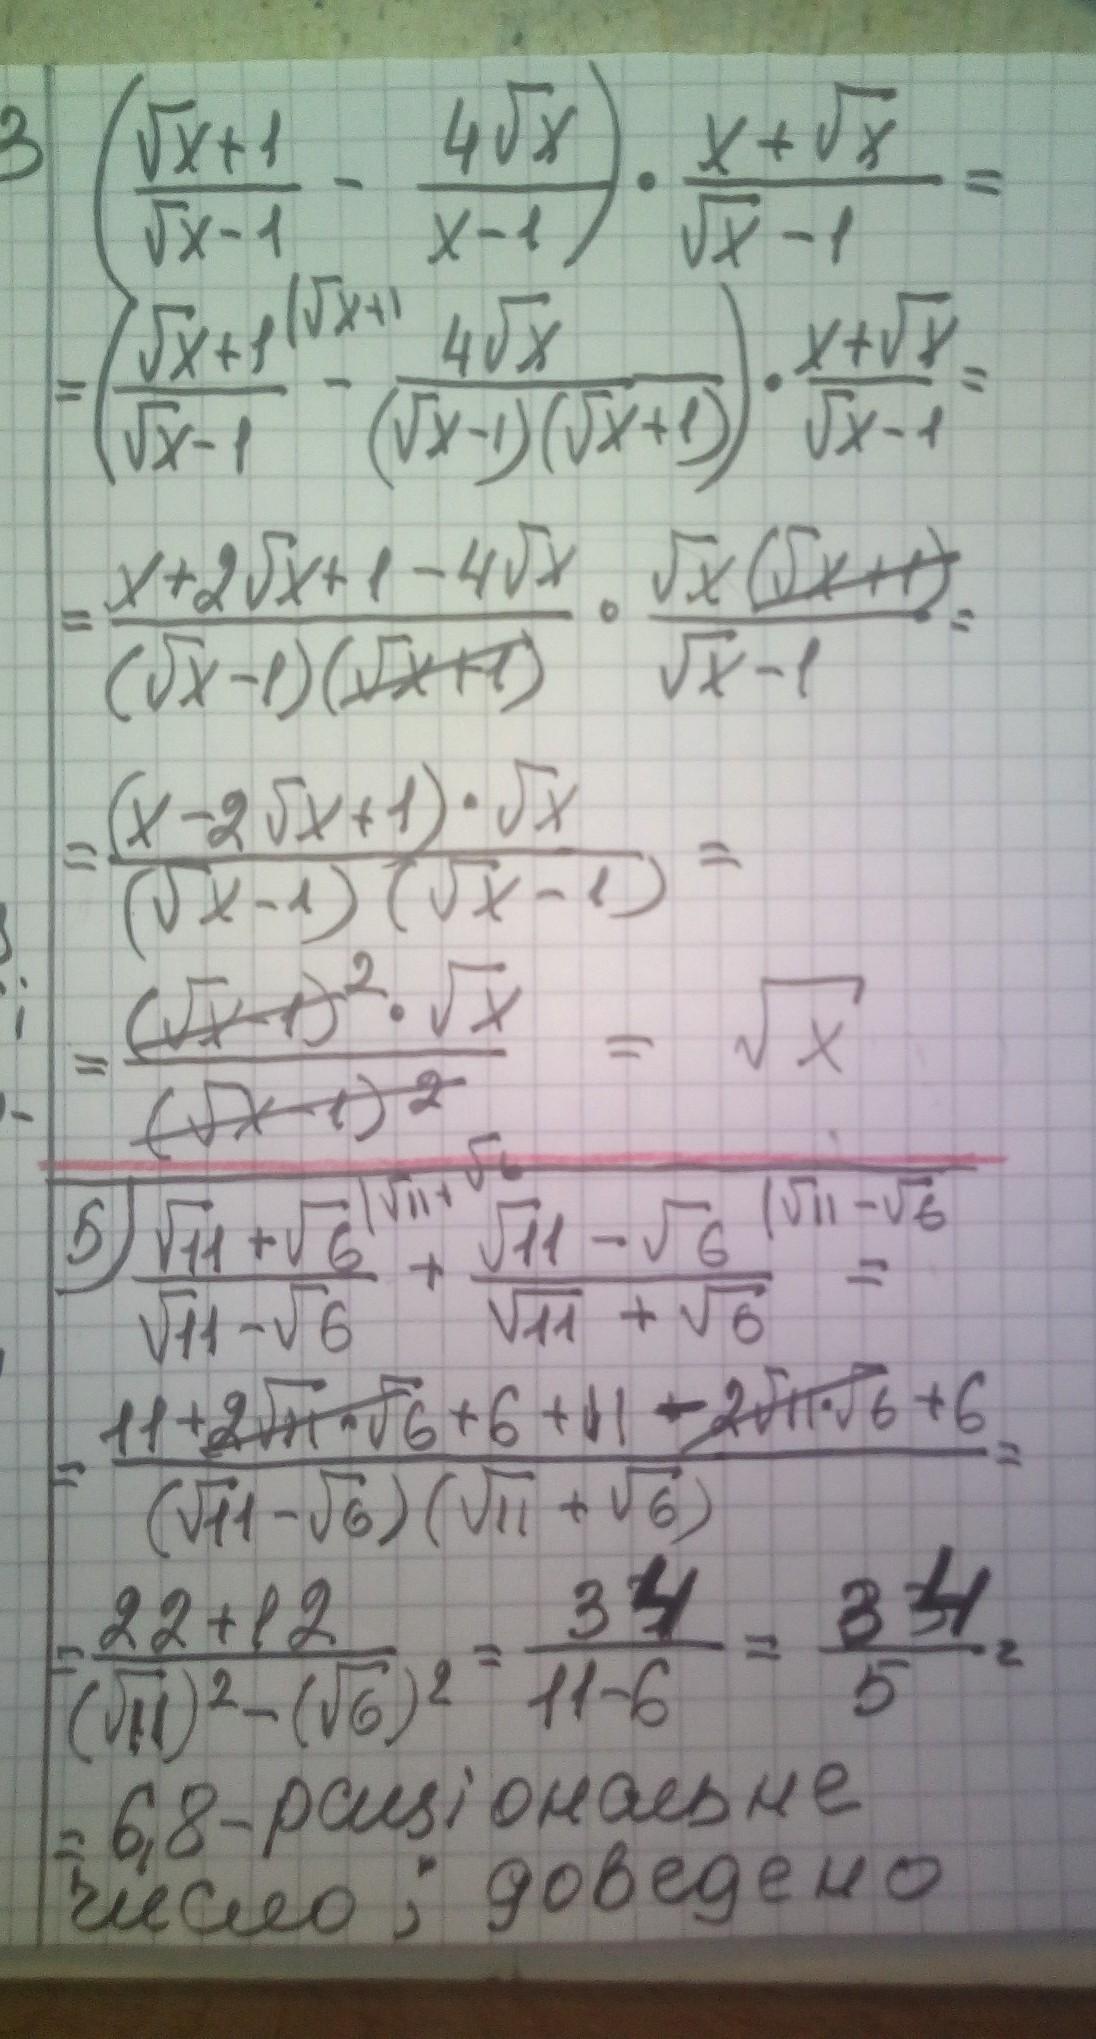 3 ((√x+1)/(√x-1) - 4√x/(x-1)) · (x+√x)/(√x-1) =
= ((√x+1)/(√x-1) |√x+1 - 4√x/((√x-1)(√x+1))) · (x+√x)/(√x-1) =
= (x+2√x+1-4√x)/((√x-1)(√x+1)) · √x(√x+1)/(√x-1) =
= (x-2√x+1)·√x/((√x-1)(√x-1)) =
= (√x-1)²·√x/(√x-1)² = √x
5) (√11+√6)/(√11-√6) |√11+√6 + (√11-√6)/(√11+√6) |√11-√6 =
= (11+2√11·√6+6+11-2√11·√6+6)/((√11-√6)(√11+√6)) =
= (22+12)/((√11)²-(√6)²) = 34/(11-6) = 34/5 =
= 6,8-раціональне
число; доведено